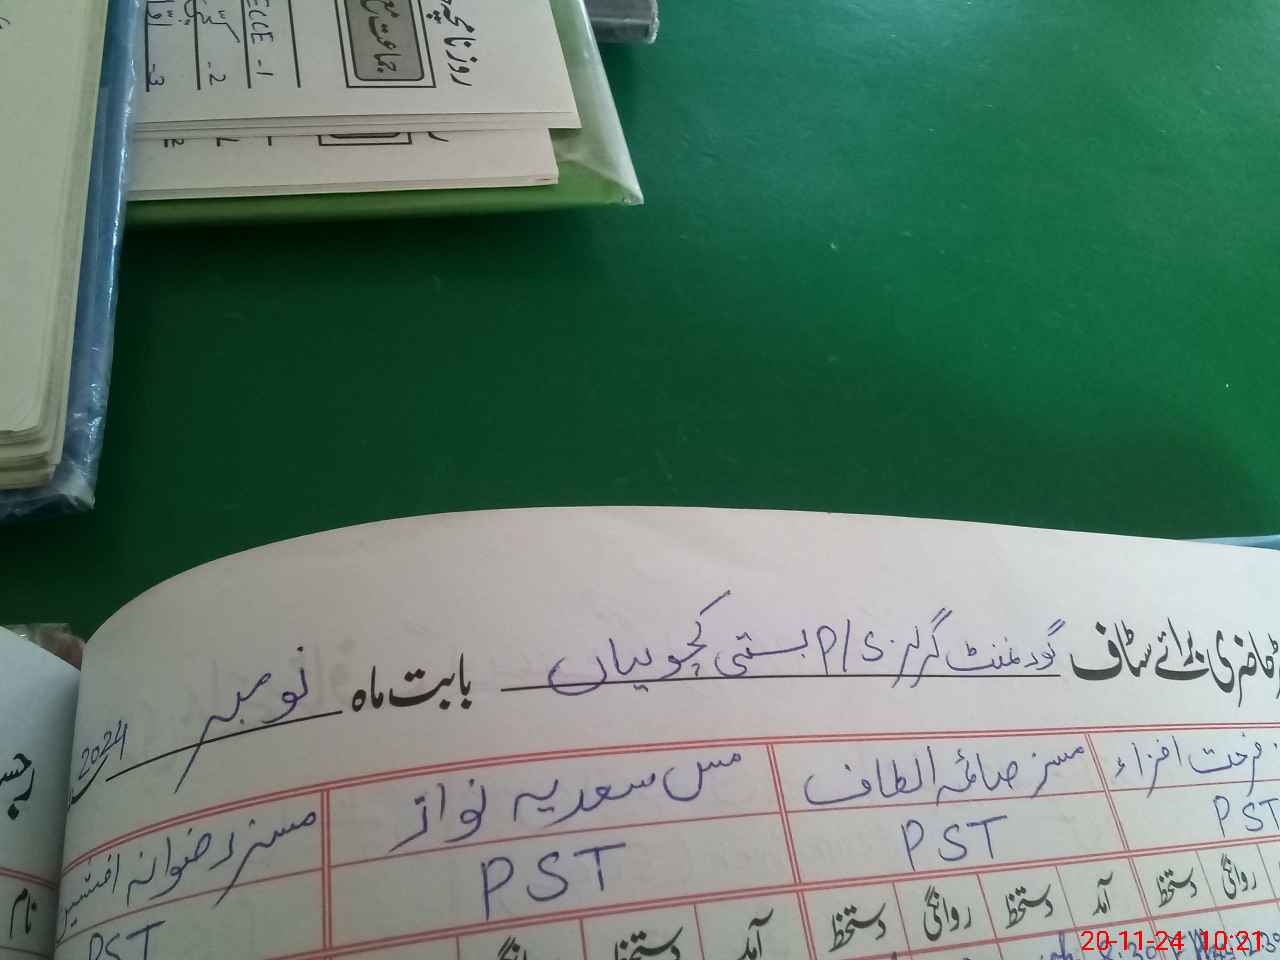 روزنامچہ
جماعت
ECCE -1
-2
-3
حاضری برائے سٹاف گورنمنٹ گرلز P/S بستی کچوہیاں بابت ماہ نومبر 2024
فرحت افزاء مسز صائمہ الطاف مس سعدیہ نواز مسز رضوانہ افشین
PST PST PST PST
روانگی دستخط آمد دستخط روانگی دستخط آمد دستخط
نام
20-11-24 10:21